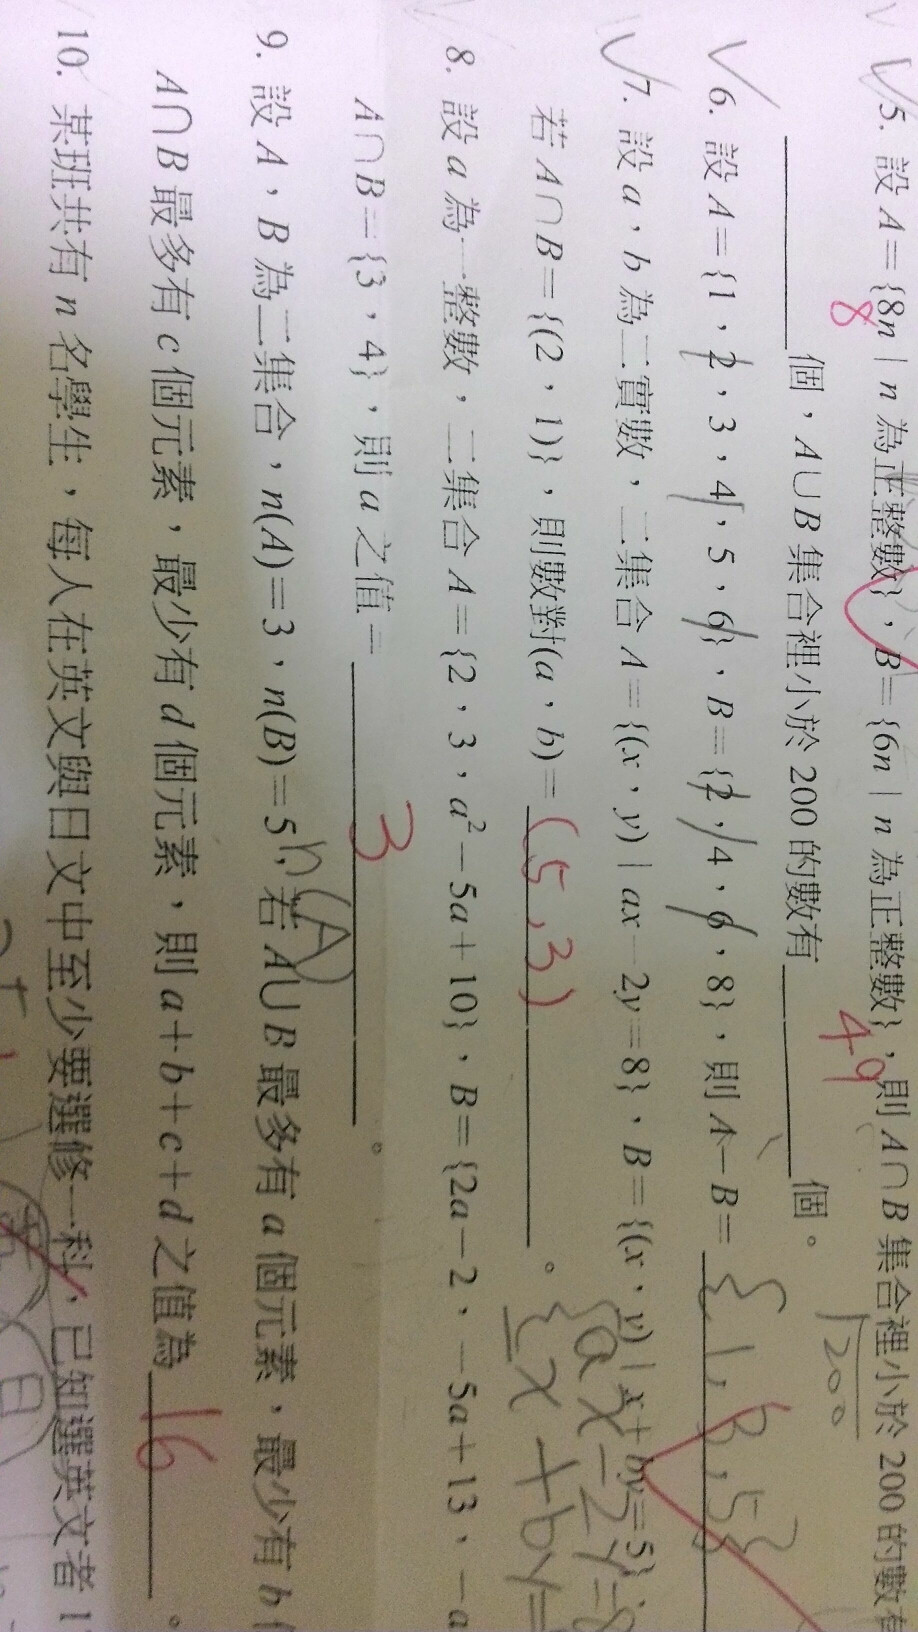 5. 設 A={8n | n 為正整數}，B={6n | n 為正整數}，則 A∩B 集合裡小於 200 的數有
8 個，A∪B 集合裡小於 200 的數有 49 個。
√200
6. 設 A={1，2，3，4，5，6}，B={2，4，6，8}，則 A－B= {1，3，5}
7. 設 a，b 為二實數，二集合 A={(x，y) | ax－2y=8}，B={(x，y) | x+by=5}，
若 A∩B={(2，1)}，則數對(a，b)= (5，3) 。
{ax－2y=8
x+by=
8. 設 a 為一整數，二集合 A={2，3，a²－5a+10}，B={2a－2，－5a+13，－a
A∩B={3，4}，則 a 之值= 3 。
n(A)
9. 設 A，B 為二集合，n(A)=3，n(B)=5，若 A∪B 最多有 a 個元素，最少有 b
A∩B 最多有 c 個元素，最少有 d 個元素，則 a+b+c+d 之值為 16 。
10. 某班共有 n 名學生，每人在英文與日文中至少要選修一科，已知選英文者 1
英 日